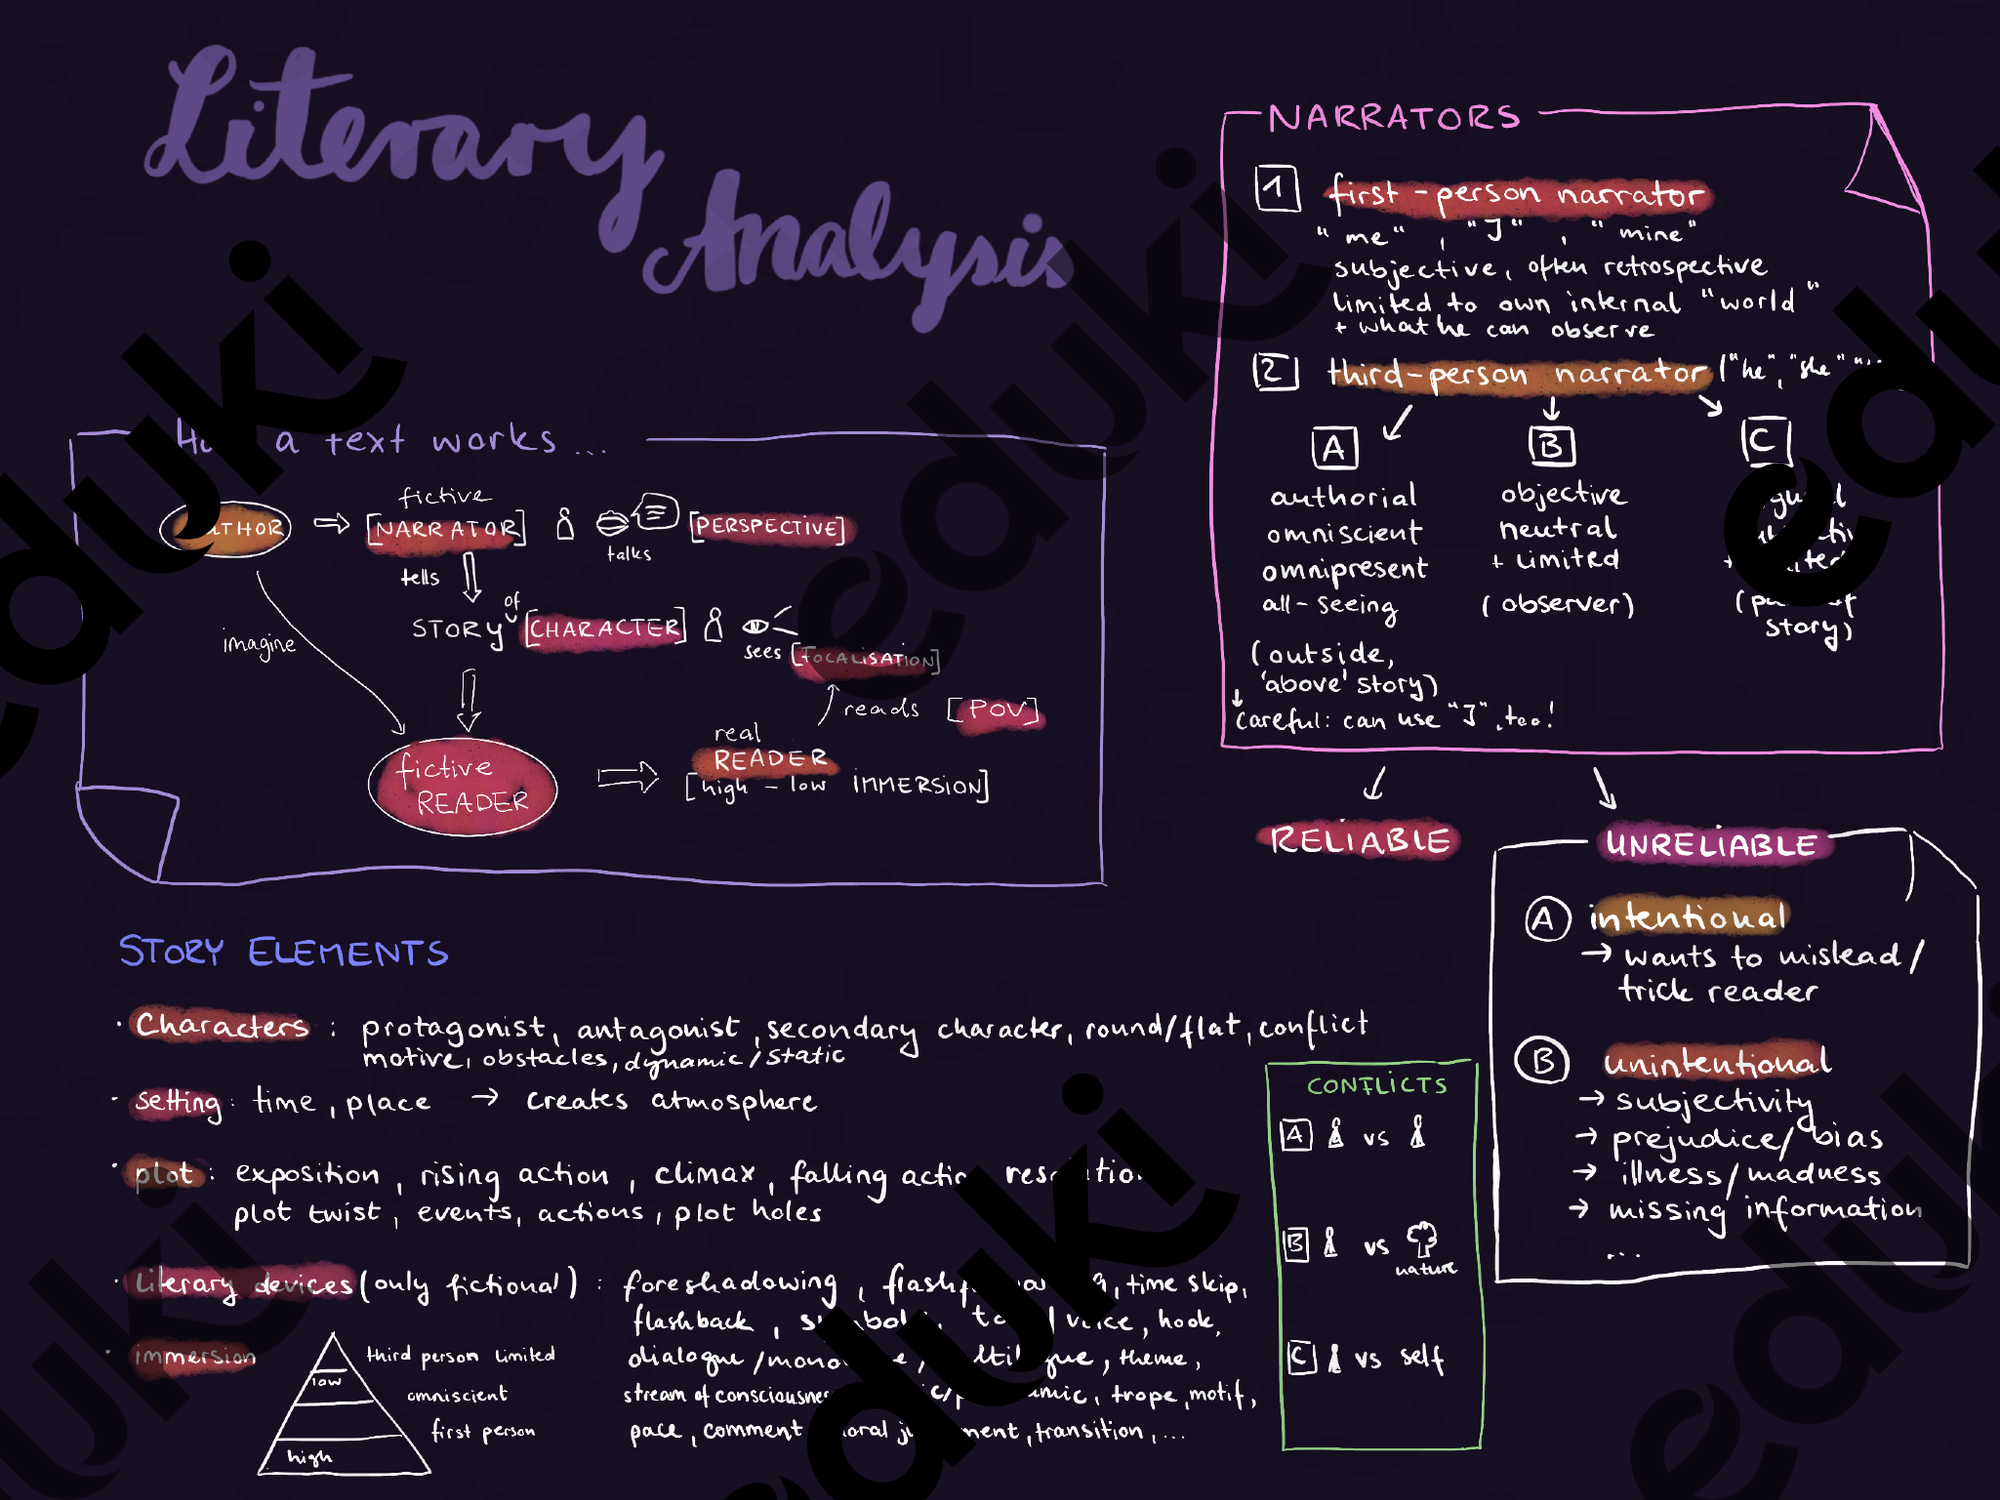 Literary
Analysis
How a text works...
AUTHOR
fictive
[NARRATOR]
talks
[PERSPECTIVE]
tells
imagine
STORY of [CHARACTER]
sees [FOCALISATION]
reads [POV]
fictive
READER
real
READER
[high - low IMMERSION]
NARRATORS
1 first-person narrator
"me", "I", "mine"
subjective, often retrospective
limited to own internal "world"
+ what he can observe
2 third-person narrator ("he", "she"
A
authorial
omniscient
omnipresent
all-seeing
(outside,
'above' story)
Careful: can use "I", too!
B
objective
neutral
+ limited
(observer)
C
story)
RELIABLE
UNRELIABLE
A intentional
→ wants to mislead/
trick reader
B unintentional
→ subjectivity
→ prejudice/bias
→ illness/madness
→ missing information
...
STORY ELEMENTS
· Characters : protagonist, antagonist, secondary character, round/flat, conflict
motive, obstacles, dynamic/static
· setting: time, place → creates atmosphere
· plot: exposition, rising action, climax, falling action
plot twist, events, actions, plot holes
· Literary devices (only fictional) : foreshadowing, time skip,
flashback, hook,
dialogue/ theme,
stream of consciousness trope, motif,
pace, comment transition, ...
· immersion
low
high
third person limited
omniscient
first person
CONFLICTS
A vs
B vs
nature
C vs self
eduki
eduki
eduki
eduki
eduki
eduki